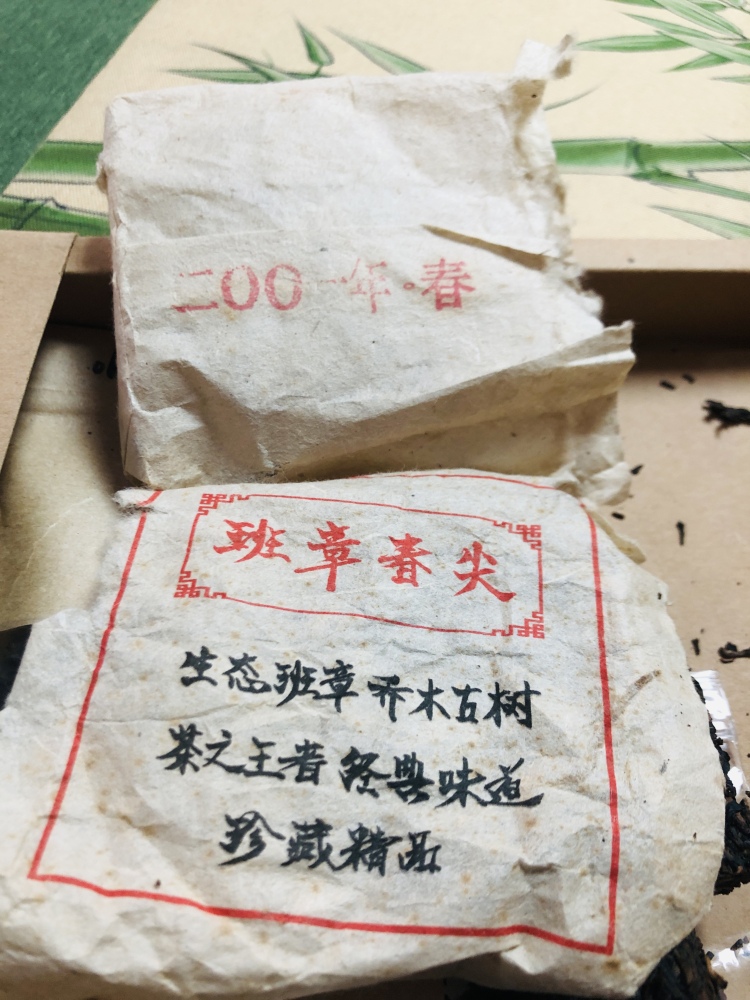 二00一年·春
班章春尖
生态班章乔木古树
茶之王者经典味道
珍藏精品